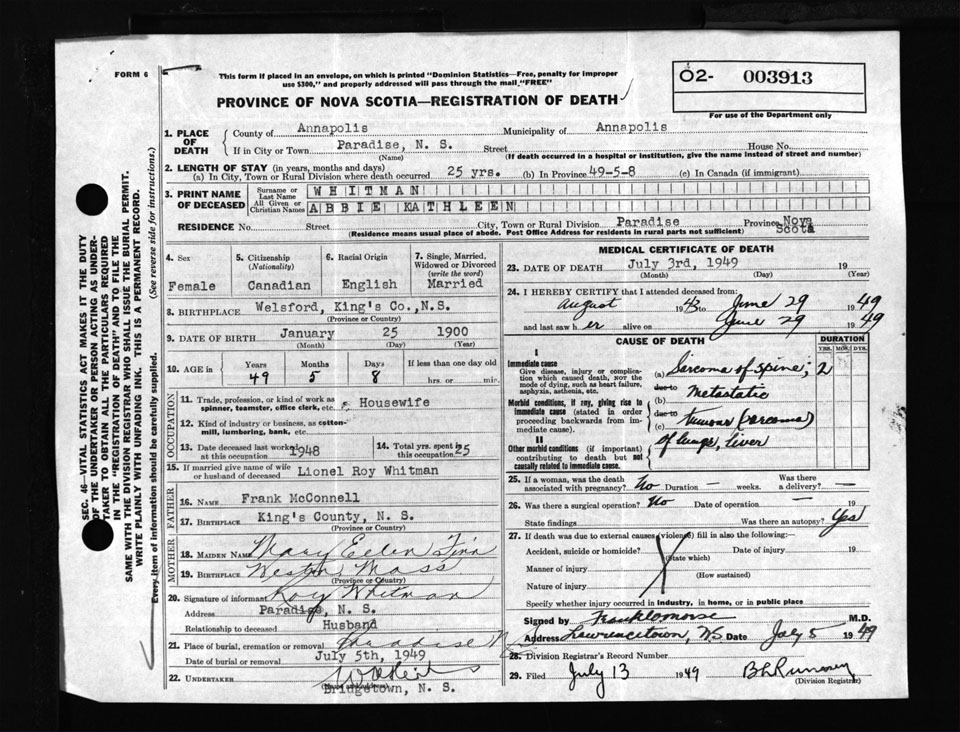 FORM 6
This form if placed in an envelope, on which is printed "Dominion Statistics—Free, penalty for improper
use $300," and properly addressed will pass through the mail "FREE"
O2- 003913
For use of the Department only
PROVINCE OF NOVA SCOTIA—REGISTRATION OF DEATH
1. PLACE OF DEATH
County of Annapolis Municipality of Annapolis
If in City or Town Paradise, N. S. Street House No.
(Name) (If death occurred in a hospital or institution, give the name instead of street and number)
2. LENGTH OF STAY (in years, months and days)
(a) In City, Town or Rural Division where death occurred 25 yrs. (b) In Province 49-5-8 (c) In Canada (if immigrant)
3. PRINT NAME OF DECEASED
Surname or Last Name WHITMAN
All Given or Christian Names ABBIE KATHLEEN
RESIDENCE No. Street City, Town or Rural Division Paradise Province Nova Scotia
(Residence means usual place of abode. Post Office Address for residents in rural parts not sufficient)
4. Sex
Female
5. Citizenship (Nationality)
Canadian
6. Racial Origin
English
7. Single, Married, Widowed or Divorced (write the word)
Married
8. BIRTHPLACE Welsford, King's Co., N.S.
(Province or Country)
9. DATE OF BIRTH January 25 1900
(Month) (Day) (Year)
10. AGE in Years Months Days If less than one day old
49 5 8 hrs. or min.
OCCUPATION
11. Trade, profession, or kind of work as spinner, teamster, office clerk, etc. Housewife
12. Kind of industry or business, as cotton-mill, lumbering, bank, etc.
13. Date deceased last worked at this occupation 1948
14. Total yrs. spent in this occupation 25
15. If married give name of wife or husband of deceased Lionel Roy Whitman
FATHER
16. NAME Frank McConnell
17. BIRTHPLACE King's County, N. S.
(Province or Country)
MOTHER
18. MAIDEN NAME Mary Ellen Finn
19. BIRTHPLACE Mass
(Province or Country)
20. Signature of informant Roy Whitman
Address Paradise, N. S.
Relationship to deceased Husband
21. Place of burial, cremation or removal Paradise N
Date of burial or removal July 5th, 1949
22. UNDERTAKER
Bridgetown, N. S.
MEDICAL CERTIFICATE OF DEATH
23. DATE OF DEATH July 3rd, 1949 19
(Month) (Day) (Year)
24. I HEREBY CERTIFY that I attended deceased from:
August 1943 to June 29 1949
and last saw her alive on June 29 1949
CAUSE OF DEATH
DURATION
YRS. MOS. DYS.
I
Immediate cause
Give disease, injury or complication which caused death, NOT the mode of dying, such as heart failure, asphyxia, asthenia, etc.
(a) Sarcoma of spine; 2
due to
Morbid conditions, if any, giving rise to immediate cause (stated in order proceeding backwards from immediate cause).
(b) Metastatic
due to
(c) tumours (sarcoma)
II
Other morbid conditions (if important) contributing to death but not causally related to immediate cause.
of lungs, liver
25. If a woman, was the death associated with pregnancy? No Duration — weeks. Was there a delivery? —
26. Was there a surgical operation? No Date of operation — 19
State findings Was there an autopsy? Yes
27. If death was due to external causes (violence) fill in also the following:
Accident, suicide or homicide? Date of injury 19
(State which)
Manner of injury
(How sustained)
Nature of injury
Specify whether injury occurred in industry, in home, or in public place
Signed by Frank Morse M.D.
Address Lawrencetown, N.S. Date July 5 1949
28. Division Registrar's Record Number
29. Filed July 13 1949
(Division Registrar)
SEC. 46—VITAL STATISTICS ACT MAKES IT THE DUTY
OF THE UNDERTAKER OR PERSON ACTING AS UNDER-
TAKER TO OBTAIN ALL THE PARTICULARS REQUIRED
IN THE "REGISTRATION OF DEATH" AND TO FILE THE
SAME WITH THE DIVISION REGISTRAR WHO SHALL ISSUE THE BURIAL PERMIT.
WRITE PLAINLY WITH UNFADING INK. THIS IS A PERMANENT RECORD.
Every item of information should be carefully supplied. (See reverse side for instructions.)